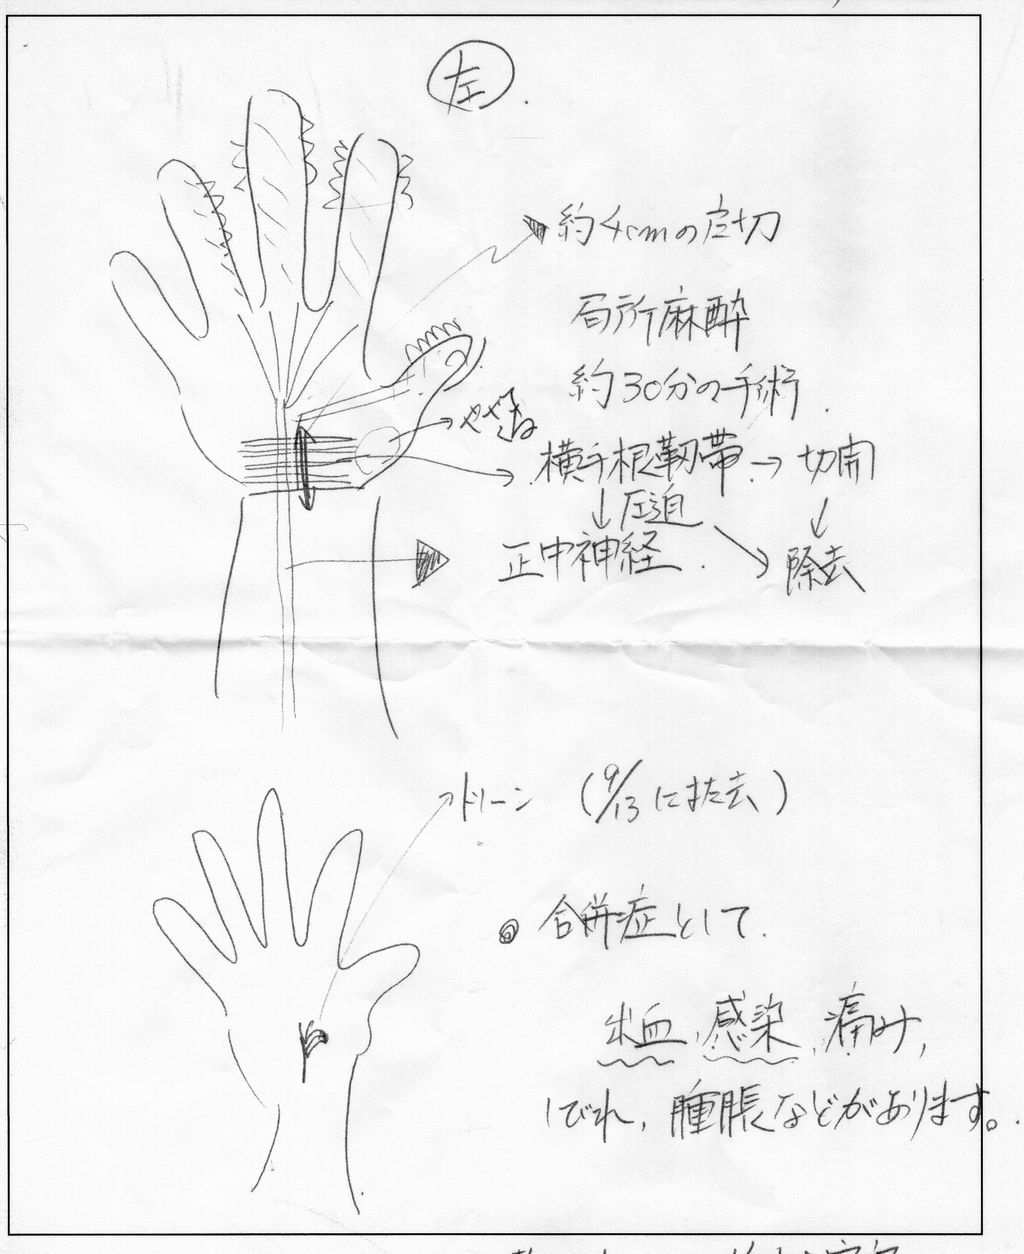 左
約4cmの皮切
局所麻酔
約30分の手術
やせる
横手根靭帯→切開
↓圧迫 ↓
正中神経 除去
ドリーン (9/13に抜去)
◎ 合併症として
出血、感染、痛み、
しびれ、腫脹などがあります。